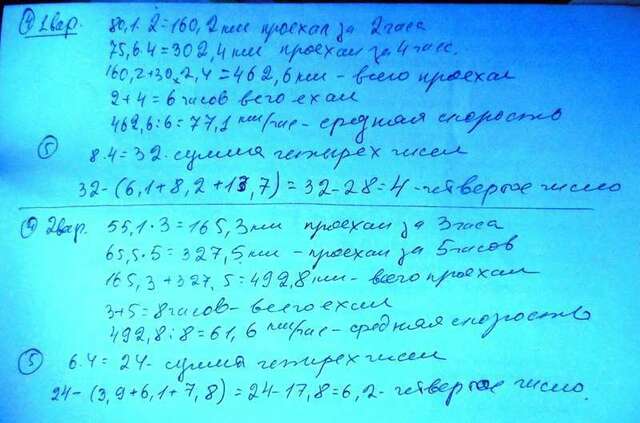 ④ 1вар. 80,1·2=160,2км проехал за 2часа
75,6·4=302,4км проехал за 4час.
160,2+302,4=462,6км - всего проехал
2+4=6часов всего ехал
462,6:6=77,1 км/час - средняя скорость
⑤ 8·4=32-сумма четырех чисел
32-(6,1+8,2+13,7)=32-28=4 -четвертое число
④ 2вар. 55,1·3=165,3км проехал за 3часа
65,5·5=327,5км - проехал за 5часов
165,3+327,5=492,8км - всего проехал
3+5=8часов - всего ехал
492,8:8=61,6 км/час - средняя скорость
⑤ 6·4=24- сумма четырех чисел
24-(3,9+6,1+7,8)=24-17,8=6,2- четвертое число.